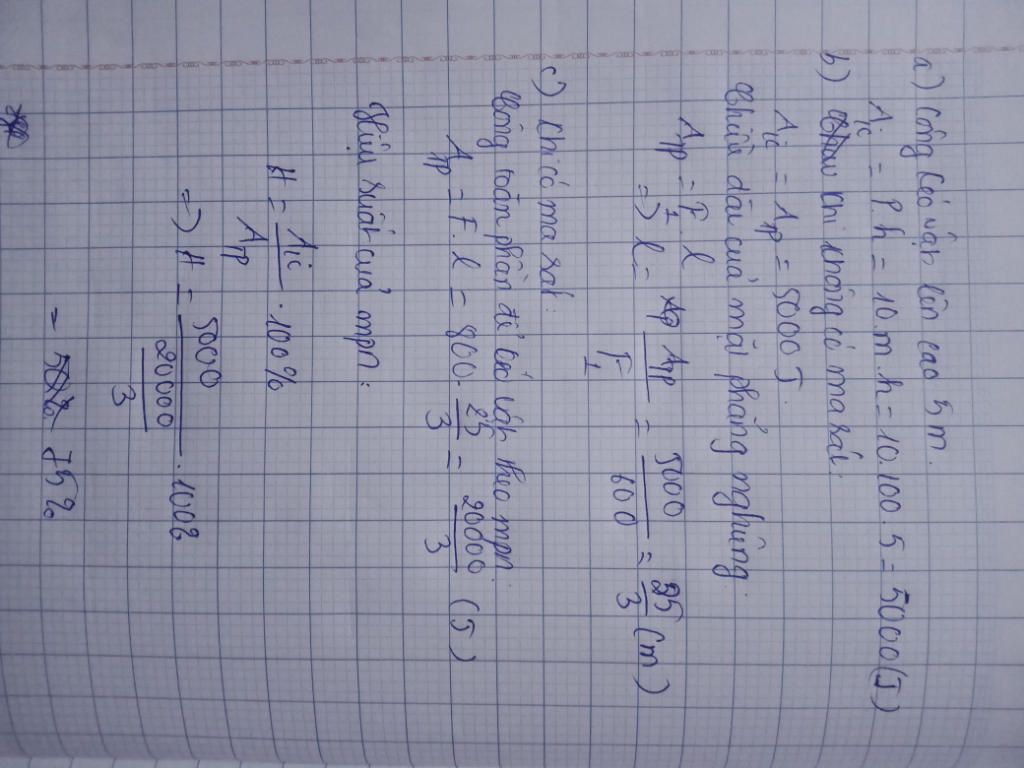 a) Công kéo vật lên cao 5m.
Aic = P.h = 10.m.h = 10.100.5 = 5000(J)
b) Khi không có ma sát
Aic = Atp = 5000 J.
Chiều dài của mặt phẳng nghiêng:
Atp = F1.l
=> l = Atp/F1 = 5000/600 = 25/3 (m)
c) Khi có ma sát:
Công toàn phần để kéo vật theo mpn:
Atp = F.l = 800. 25/3 = 20000/3 (J)
Hiệu suất của mpn:
H = Aic/Atp . 100%
=> H = 5000/(20000/3) . 100%
= 75%